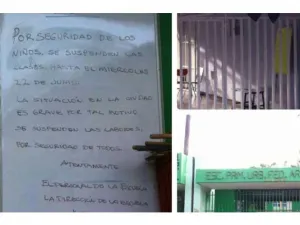 POR SEGURIDAD DE LOS
NIÑOS SE SUSPENDEN LAS
CLASES HASTA EL MIERCOLES
22 DE JUNIO.
LA SITUACIÓN EN LA
ES GRAVE POR TAL MOTIVO
SE SUSPENDEN LAS LABORES
POR SEGURIDAD DE TODOS.
ATENTAMENTE
EL PERSONAL DE LA ESCUELA
LA DIRECCION DE LA ESCUELA
ESC. PRIM. URB. FED. AR